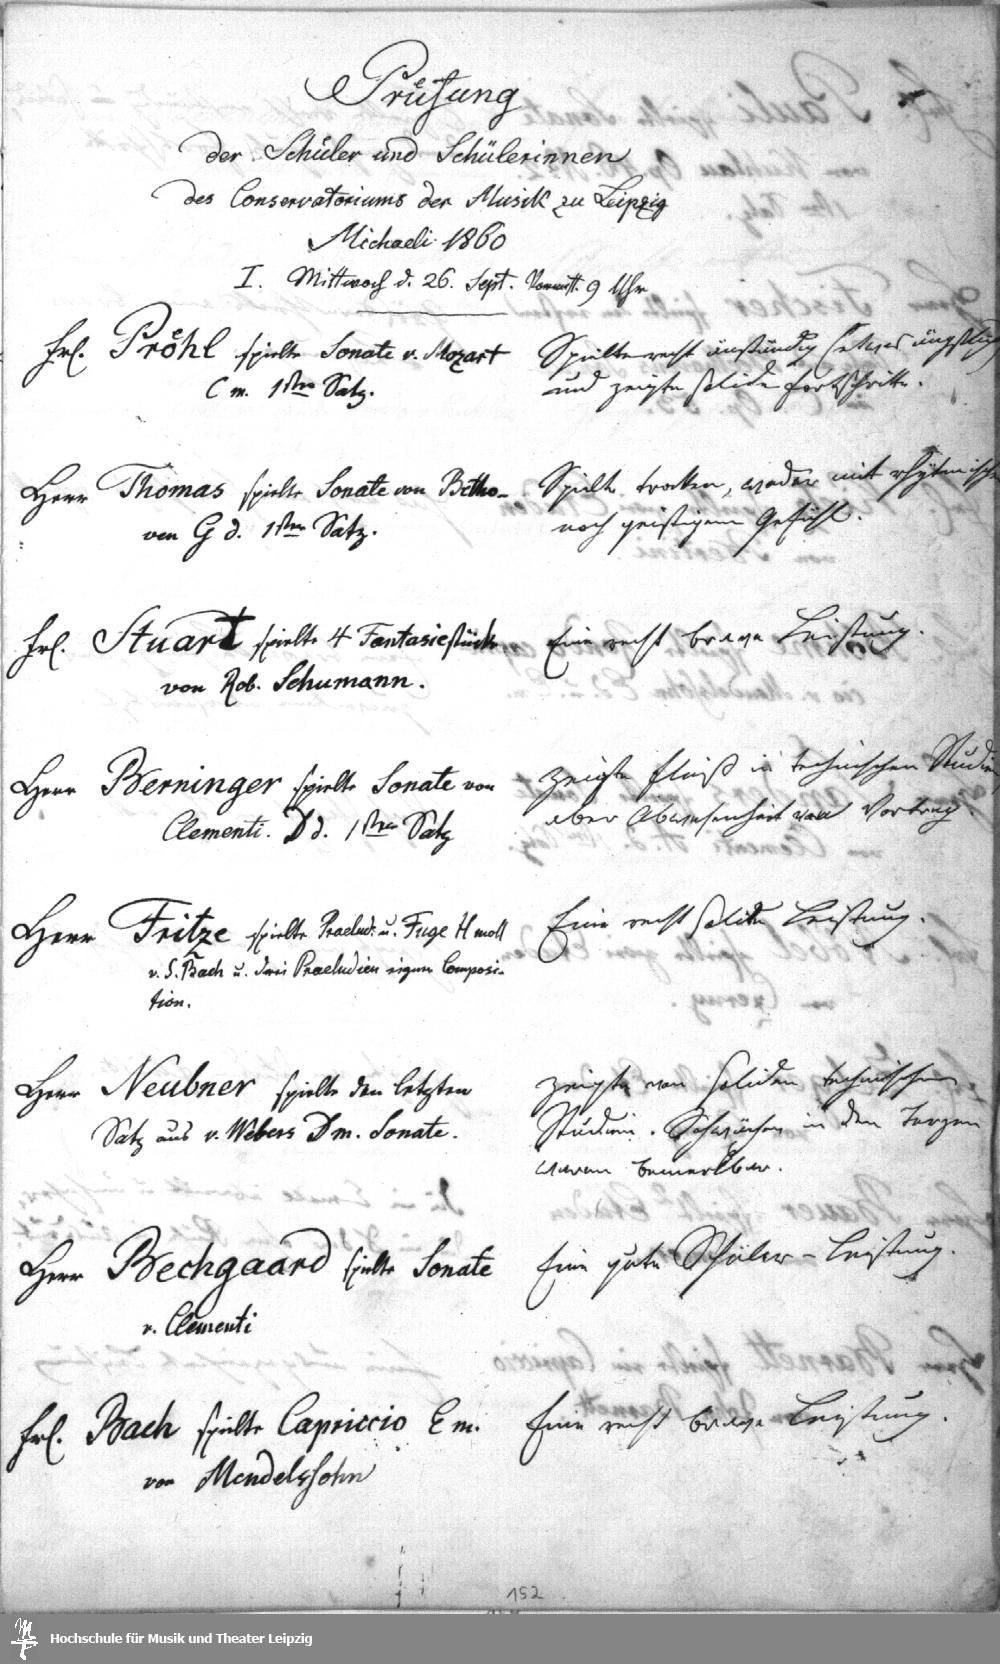 Prüfung
der Schüler und Schülerinnen
des Conservatoriums der Musik zu Leipzig
Michaeli 1860
I. Mittwoch d. 26. Sept. Vormitt. 9 Uhr
Frl. Pröhl spielte Sonate v. Mozart
C m. 1sten Satz.
Spielte recht anständig (etwas ängstlich)
und zeigte solide Fortschritte.
Herr Thomas spielte Sonate von Betho-
ven G d. 1sten Satz.
Spielte trocken, weder mit rhytmischem
noch geistigem Gefühl.
Frl. Stuart spielte 4 Fantasiestücke
von Rob. Schumann.
Eine recht brave Leistung.
Herr Berninger spielte Sonate von
Clementi. D d. 1sten Satz
Zeigte Fleiß in technischen Studien
aber Abwesenheit von Vortrag.
Herr Fritze spielte Praelud. u. Fuge H moll
v. S. Bach u. drei Praeludien eigner Composi-
tion.
Eine recht solide Leistung.
Herr Neubner spielte den letzten
Satz aus v. Webers D m. Sonate.
Zeigte von soliden technischen
Studien. Schwächen in den
waren bemerkbar.
Herr Bechgaard spielte Sonate
v. Clementi
Eine gute Schüler-Leistung.
Frl. Bach spielte Capriccio E m.
von Mendelssohn
Eine recht brave Leistung.
152
Hochschule für Musik und Theater Leipzig